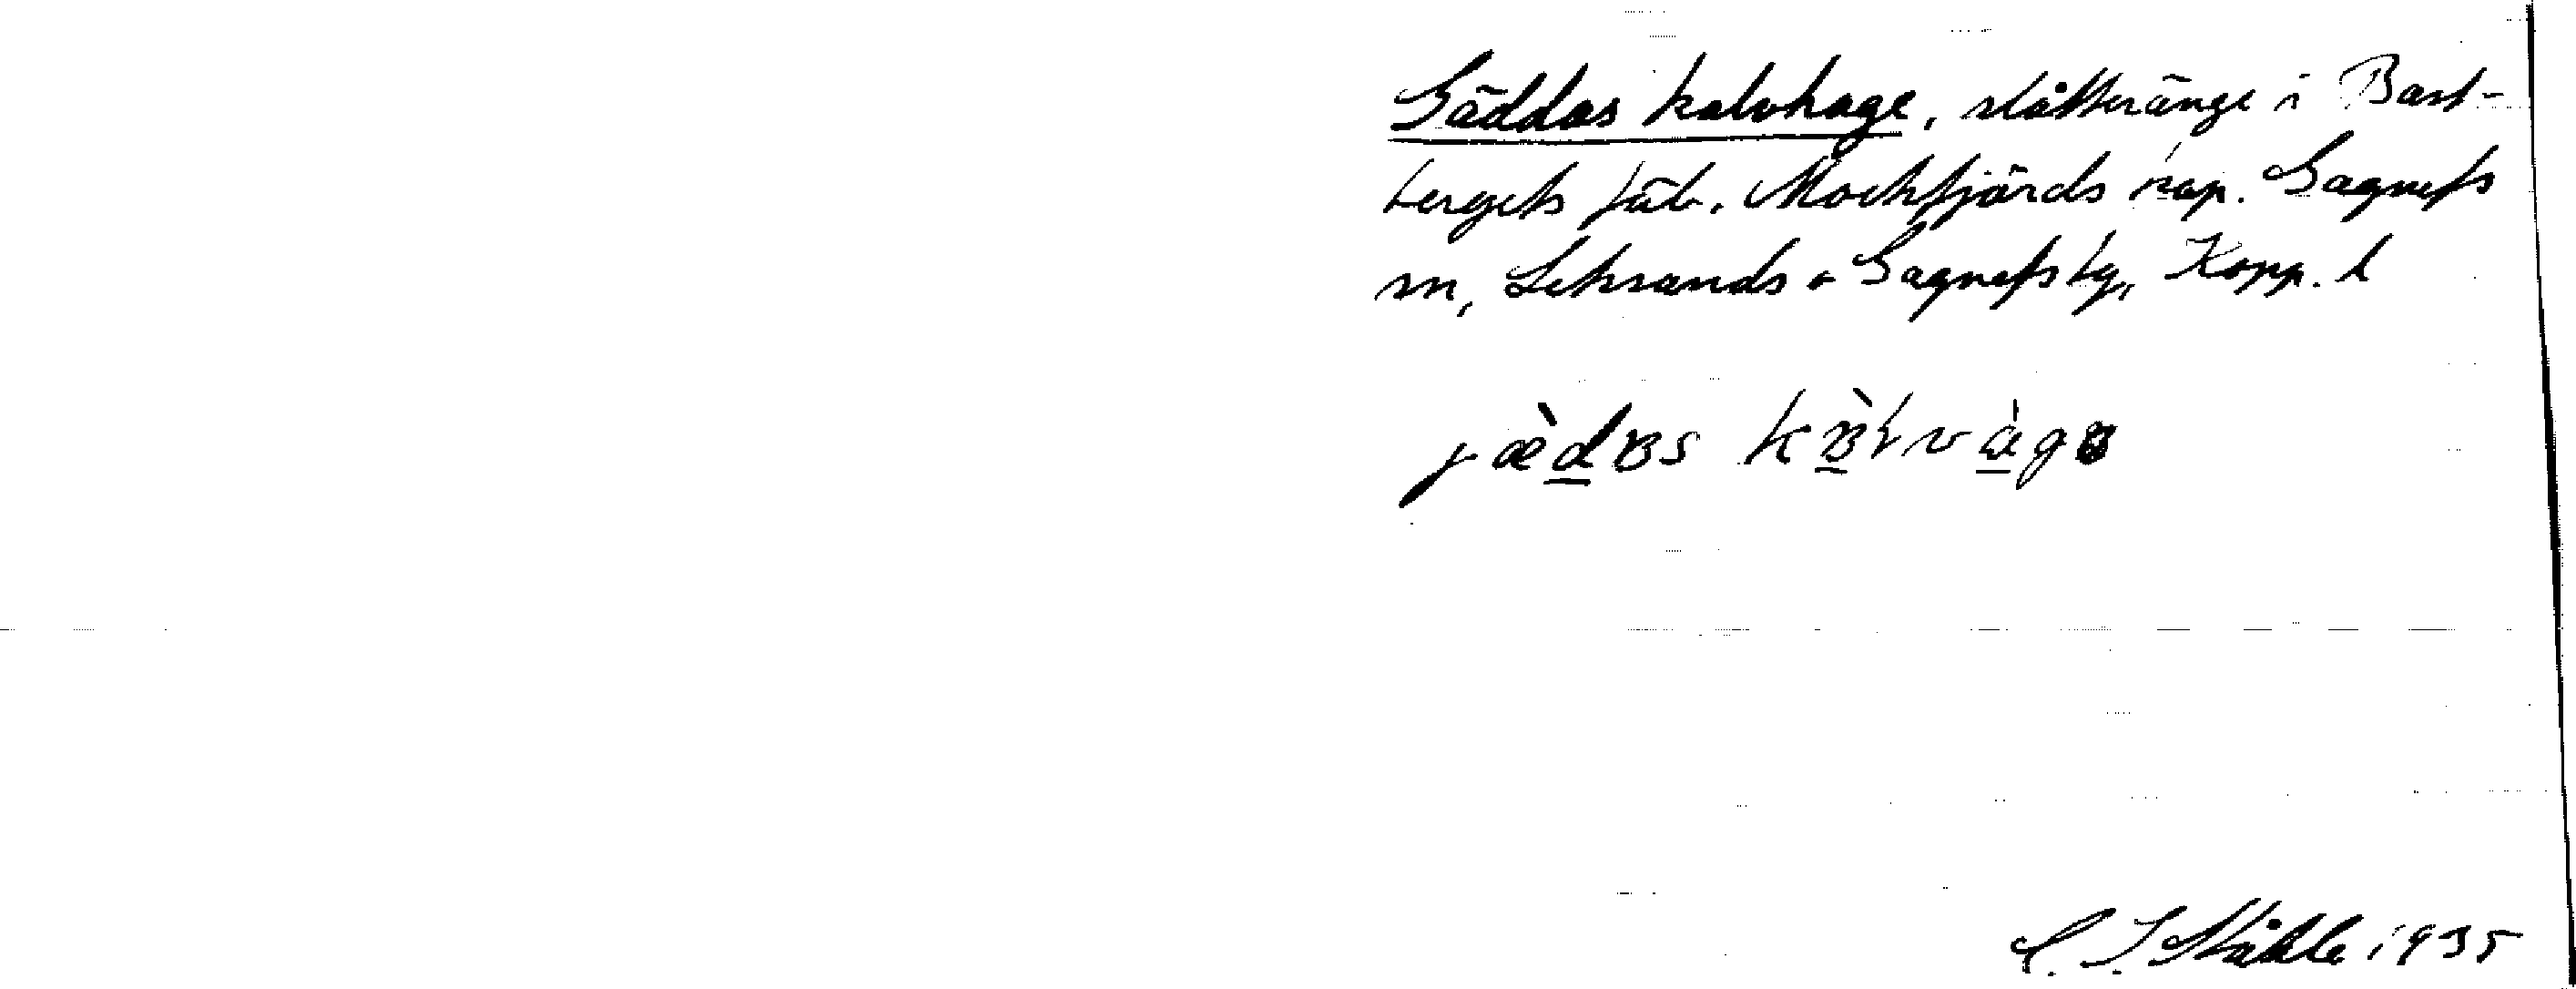 Gäddas kalvhage, slåtteränge i Bast-
bergets fäb. Mockfjärds kap. Gagnefs
sn, Leksands o Gagnefs tg, Kopp. l
C. I. Ståhle 1935